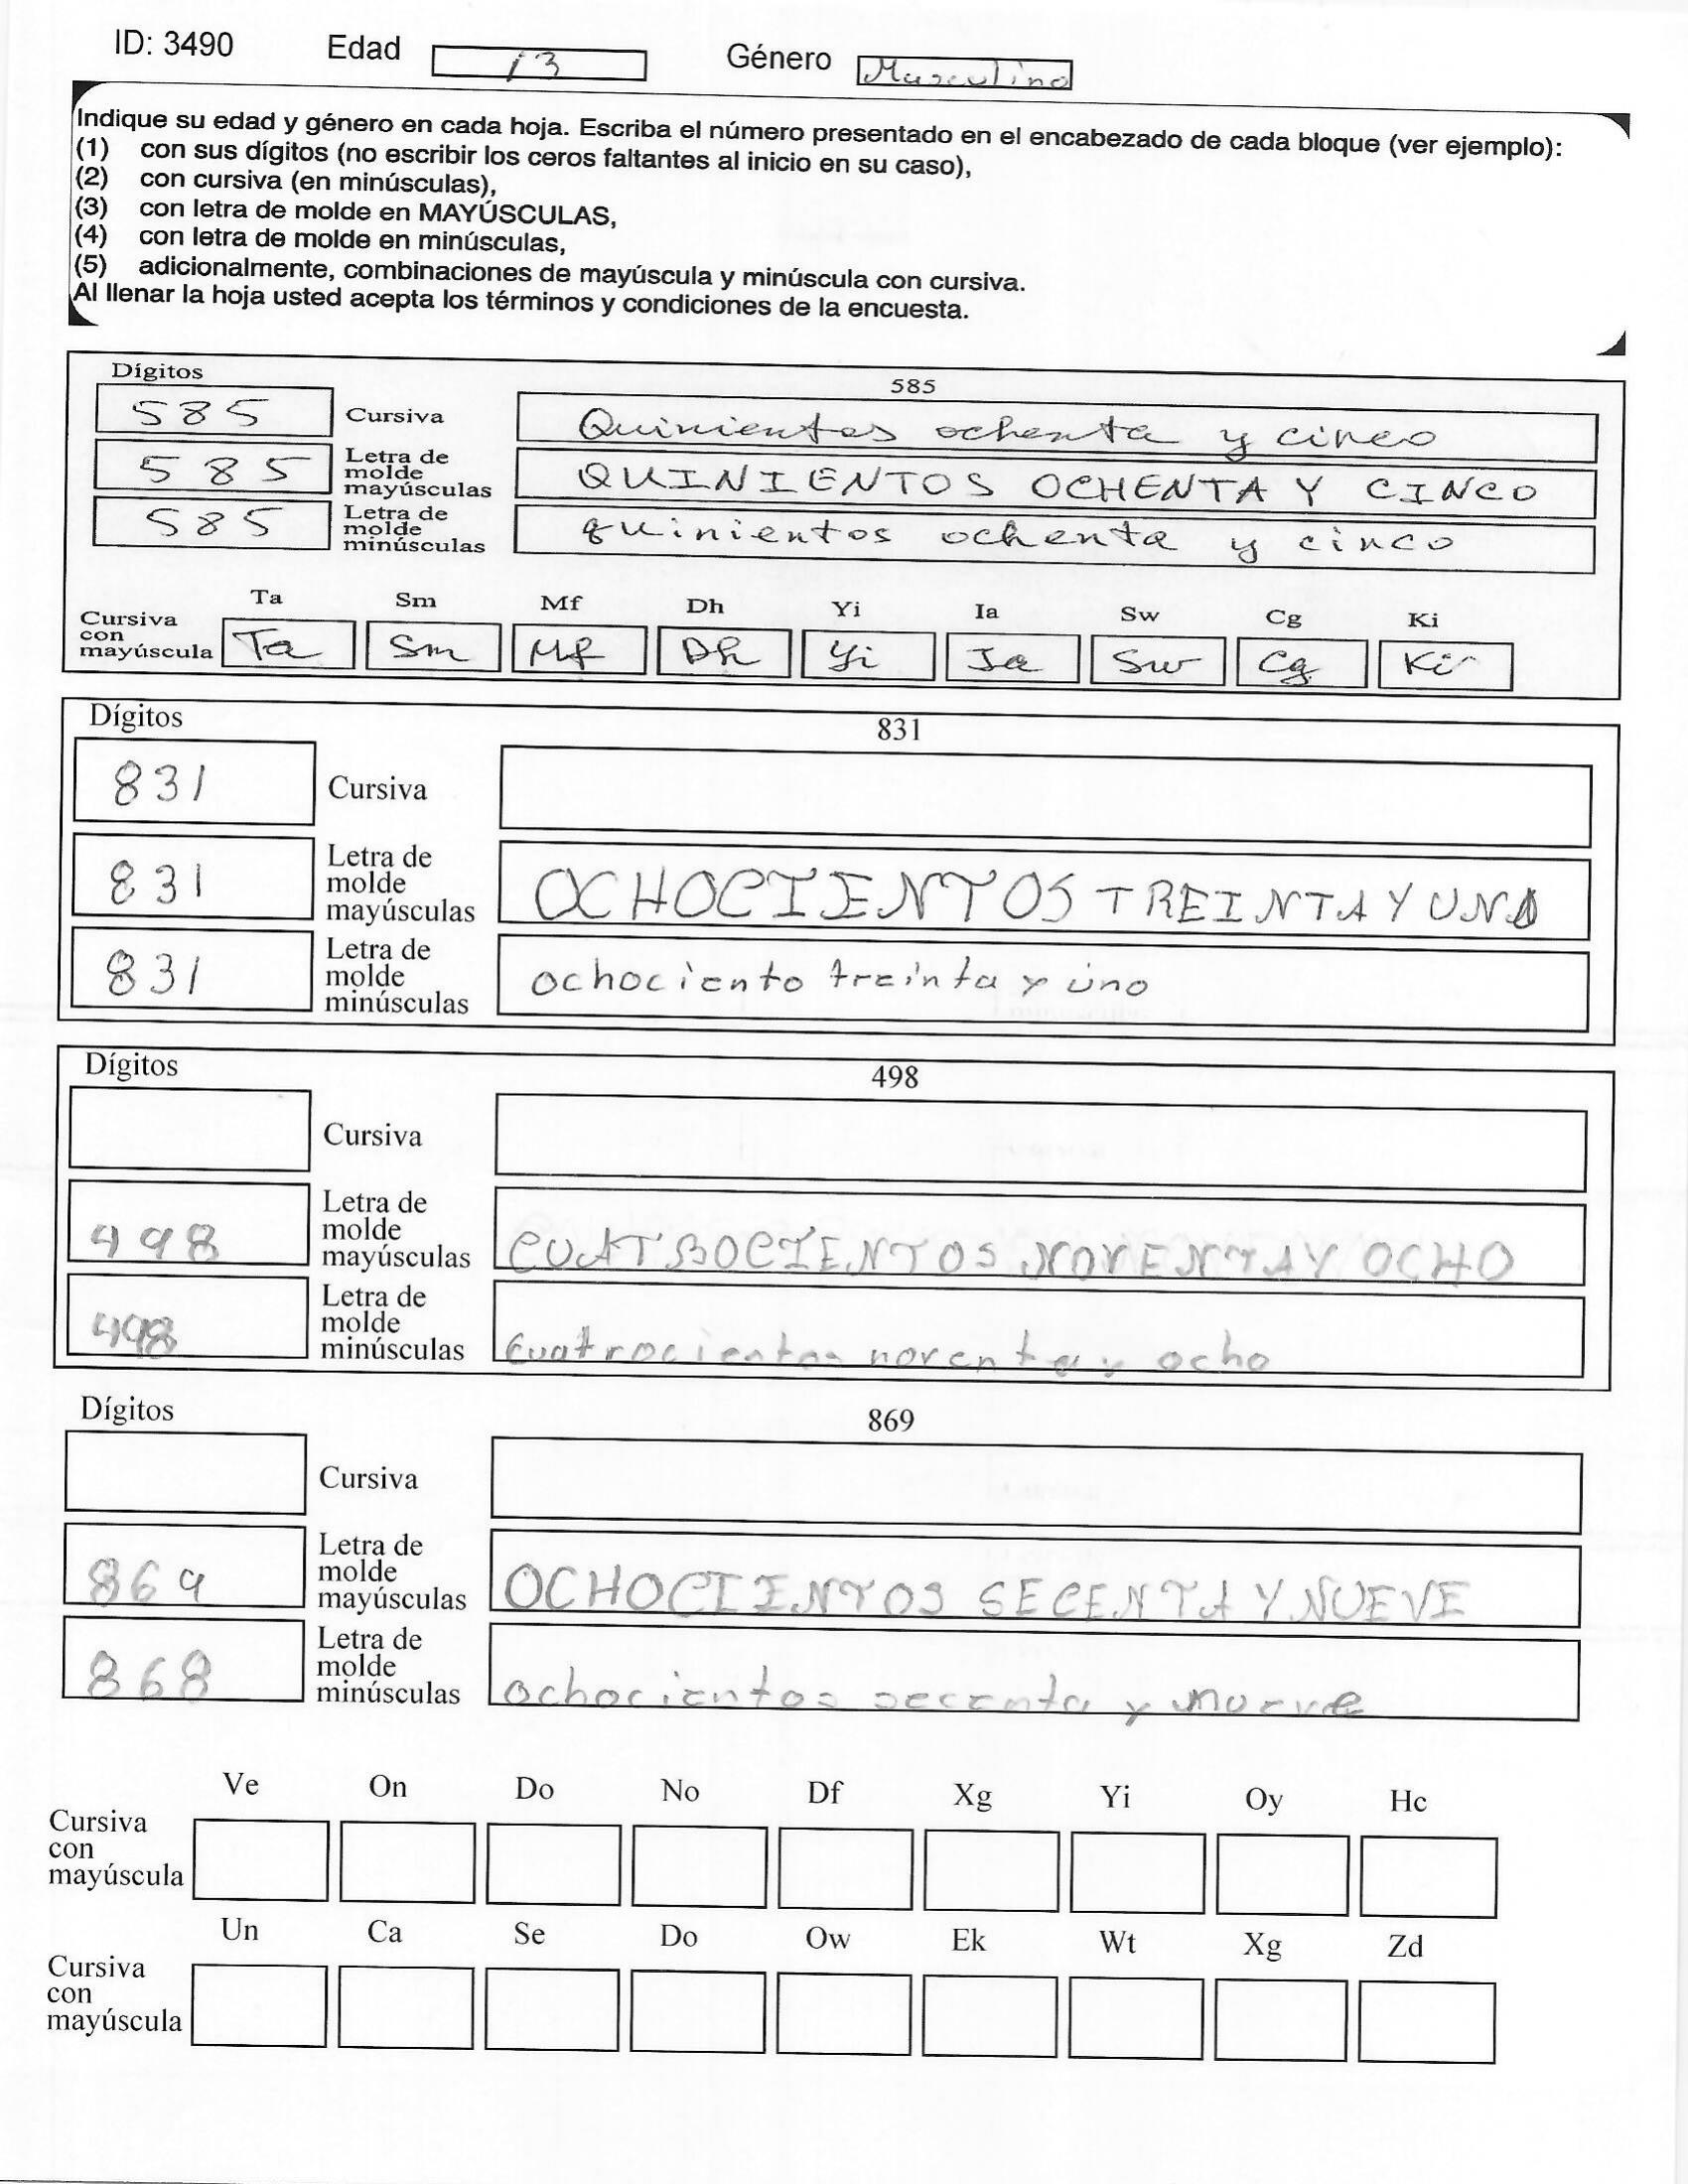 ID: 3490 Edad 13 Género Masculino
Indique su edad y género en cada hoja. Escriba el número presentado en el encabezado de cada bloque (ver ejemplo):
(1) con sus dígitos (no escribir los ceros faltantes al inicio en su caso),
(2) con cursiva (en minúsculas),
(3) con letra de molde en MAYÚSCULAS,
(4) con letra de molde en minúsculas,
(5) adicionalmente, combinaciones de mayúscula y minúscula con cursiva.
Al llenar la hoja usted acepta los términos y condiciones de la encuesta.
Dígitos 585
585 Cursiva Quinientos ochenta y cinco
585 Letra de molde mayúsculas QUINIENTOS OCHENTA Y CINCO
585 Letra de molde minúsculas quinientos ochenta y cinco
Ta Sm Mf Dh Yi Ia Sw Cg Ki
Cursiva con mayúscula Ta Sm Mf Dh Yi Ia Sw Cg Ki
Dígitos 831
831 Cursiva
831 Letra de molde mayúsculas OCHOCIENTOS TREINTA Y UNO
831 Letra de molde minúsculas ochociento treinta y uno
Dígitos 498
Cursiva
498 Letra de molde mayúsculas CUATROCIENTOS NOVENTA Y OCHO
498 Letra de molde minúsculas cuatrocientos noventa y ocho
Dígitos 869
Cursiva
869 Letra de molde mayúsculas OCHOCIENTOS SECENTA Y NUEVE
868 Letra de molde minúsculas ochocientos secenta y nueve
Ve On Do No Df Xg Yi Oy Hc
Cursiva con mayúscula
Un Ca Se Do Ow Ek Wt Xg Zd
Cursiva con mayúscula